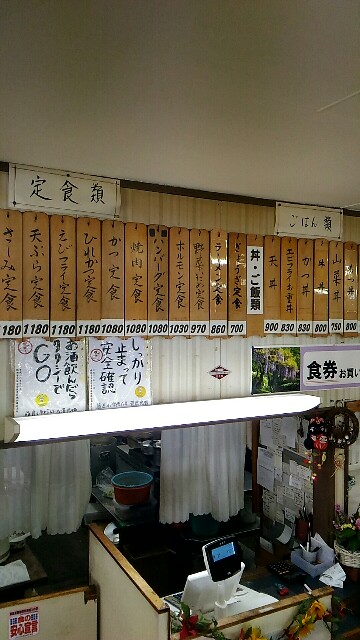 定食類
ごはん類
さしみ定食
180
天ぷら定食
1180
えびフライ定食
1180
ひれかつ定食
1180
かつ定食
1080
焼肉定食
1080
ハンバーグ定食
1080
ホルモン定食
1030
野菜いため定食
970
ラーメン定食
860
ぎょうざ定食
700
丼・ご飯類
天丼
900
エビフライ重丼
830
かつ丼
830
牛丼
800
山菜丼
750
800
お酒飲んだら
タクシーで
GO
しっかり
止まって
安全確認
食券お買い
食の
安心宣言